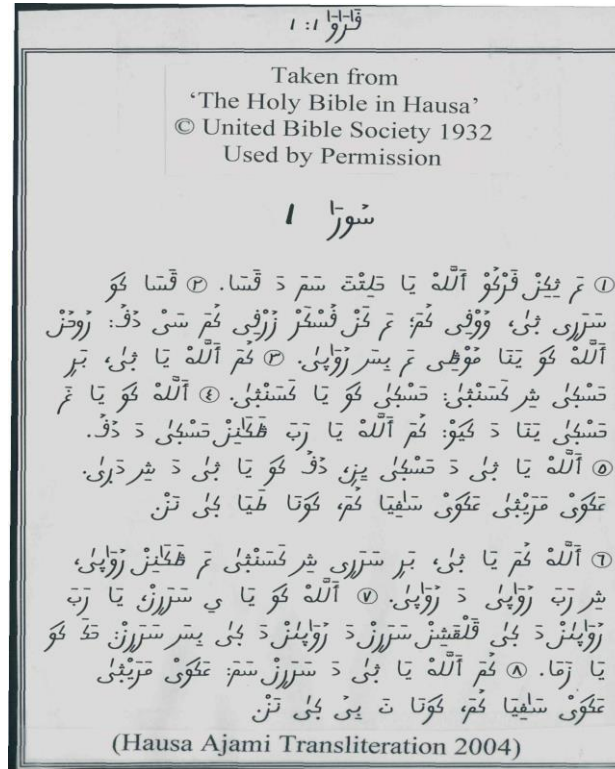 فَرَاوَا ١: ١
Taken from
‘The Holy Bible in Hausa’
© United Bible Society 1932
Used by Permission
سُورَا ١
① عَ ثِكِنْ فَرْكُوْ اَللَّهْ يَا حَلِتْتَ سَمَ دَ قَسَا. ② قَسَا كُوَ
سَرَرِى ثٜىٰ، وُوْفِى كُمَ؛ عَ كَنْ فُسْكَرْ زُرْفِى كُمَ سَىْ دُفُ: رُوحُنْ
اَللَّهْ كُوَ يَنَا مُوْطِى عَ بِسَر رُوَاپٜىٰ. ③ كُمَ اَللَّهْ يَا ثٜىٰ، بَرِ
حَسْكٜىٰ شِر كَسَنْثٜىٰ: حَسْكٜىٰ كُوَ يَا كَسَنْثٜىٰ. ④ اَللَّهْ كُوَ يَا غَ
حَسْكٜىٰ يَنَا دَ كَيَوُ: كُمَ اَللَّهْ يَا رَبَ طَكَانِنْ حَسْكٜىٰ دَ دُفُ.
⑤ اَللَّهْ يَا ثٜىٰ دَ حَسْكٜىٰ يِنِ، دُفُ كُوَ يَا ثٜىٰ دَ شِر دَرٜىٰ.
عَكَوَىْ مَرَيْثٜىٰ عَكَوَىْ سَافِيَا كُمَ، كُوَنَا طَيَا كٜىٰ نَنْ
⑥ اَللَّهْ كُمَ يَا ثٜىٰ، بَرِ سَرَرِى شِر كَسَنْثٜىٰ عَ طَكَانِنْ رُوَاپٜىٰ،
شِر رَبَ رُوَاپٜىٰ دَ رُوَاپٜىٰ. ⑦ اَللَّهْ كُوَ يَا يِ سَرَرِنْ، يَا رَبَ
رُوَاپٜىٰنْ دَ كٜىٰ قَلْقَشِنْ سَرَرِنْ دَ رُوَاپٜىٰنْ دَ كٜىٰ بِسَر سَرَرِنْ: حَكَ كُوَ
يَا زَمَا. ⑧ كُمَ اَللَّهْ يَا ثٜىٰ دَ سَرَرِنْ سَمَ: عَكَوَىْ مَرَيْثٜىٰ
عَكَوَىْ سَافِيَا كُمَ، كُوَنَا نَ بِىُ كٜىٰ نَنْ
(Hausa Ajami Transliteration 2004)